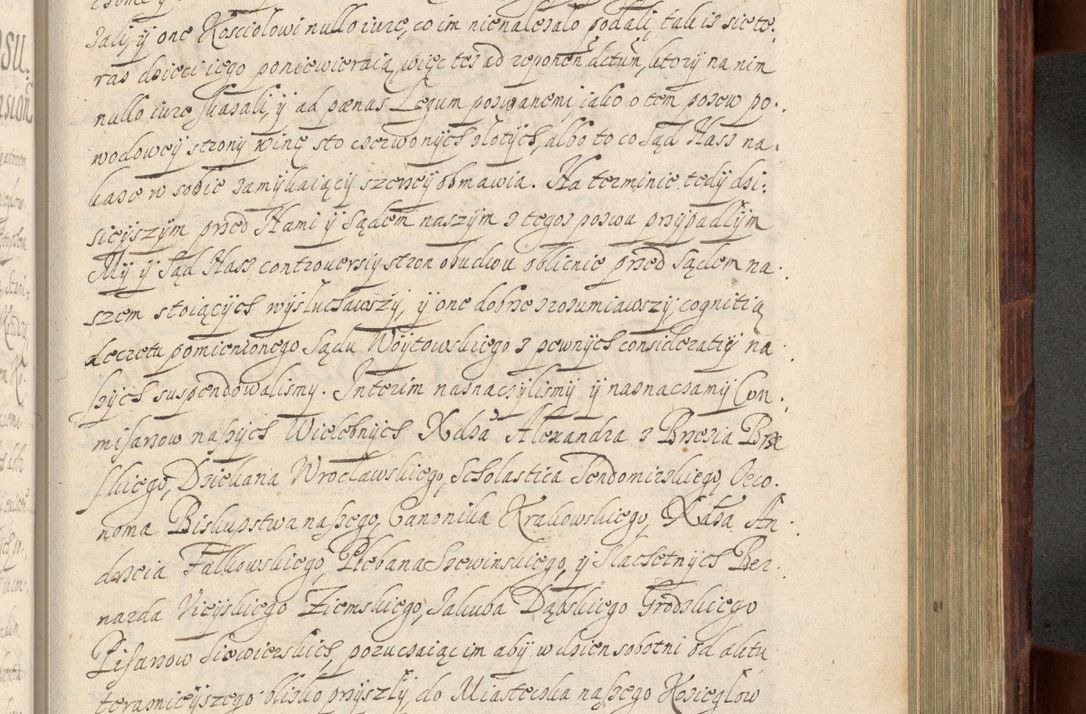 dali, ÿ one Kosciolowi nullo iure, co im nienalezalo podali, tak iz sie te:
raz dzieci iego poniewieraią, więc tes ad reponen̄ actun̄, ktorÿ na nim
nullo iure skazali, ÿ ad pænas Legum pozwanemi iako o tem pozew po:
wodoweÿ stronÿ winę sto czerwonÿch zlotÿch, albo to co Sąd Nasz na:
kaze w sobie zamÿkaiącÿ szerzeÿ obmawia. Na terminie tedÿ dzi:
sieÿszÿm przed Nami ÿ Sądem naszÿm z tegoz pozwu przÿpadlÿm
Mÿ ÿ Sąd Nasz controuersiÿ stron obudwu oblicnie przed Sądem na:
szem stoiącÿch wÿsluchawszÿ, ÿ one dobrze zrozumiawszÿ, cognitią
decretu pomienionego Sądu Woÿtowskiego z pewnÿch consideratiÿ na:
szÿch suspendowalismÿ. Interim naznaczÿlismÿ ÿ naznaczamÿ Com:
misarzow naszÿch Wielebnÿch Xdza Alexandra z Brzezia Brze
skiego, Dziekana Wroclawskiego, Scholastica Sendomirskiego, Oeco:
noma Biskupstwa naszego, Canonika Krakowskiego, Xdza An:
drzeia Falkowskiego, Plebana Szewinskiego, ÿ Slachetnÿch Ber:
narda Uieÿskiego Ziemskiego, Jakuba Dąbskiego Grodzkiego
Pisarzow Siewierskich, poruczaiąc im abÿ w dzien sobotni od aktu
teraznieÿszego blisko przÿszlÿ, do Miasteczka naszego Kozieglow